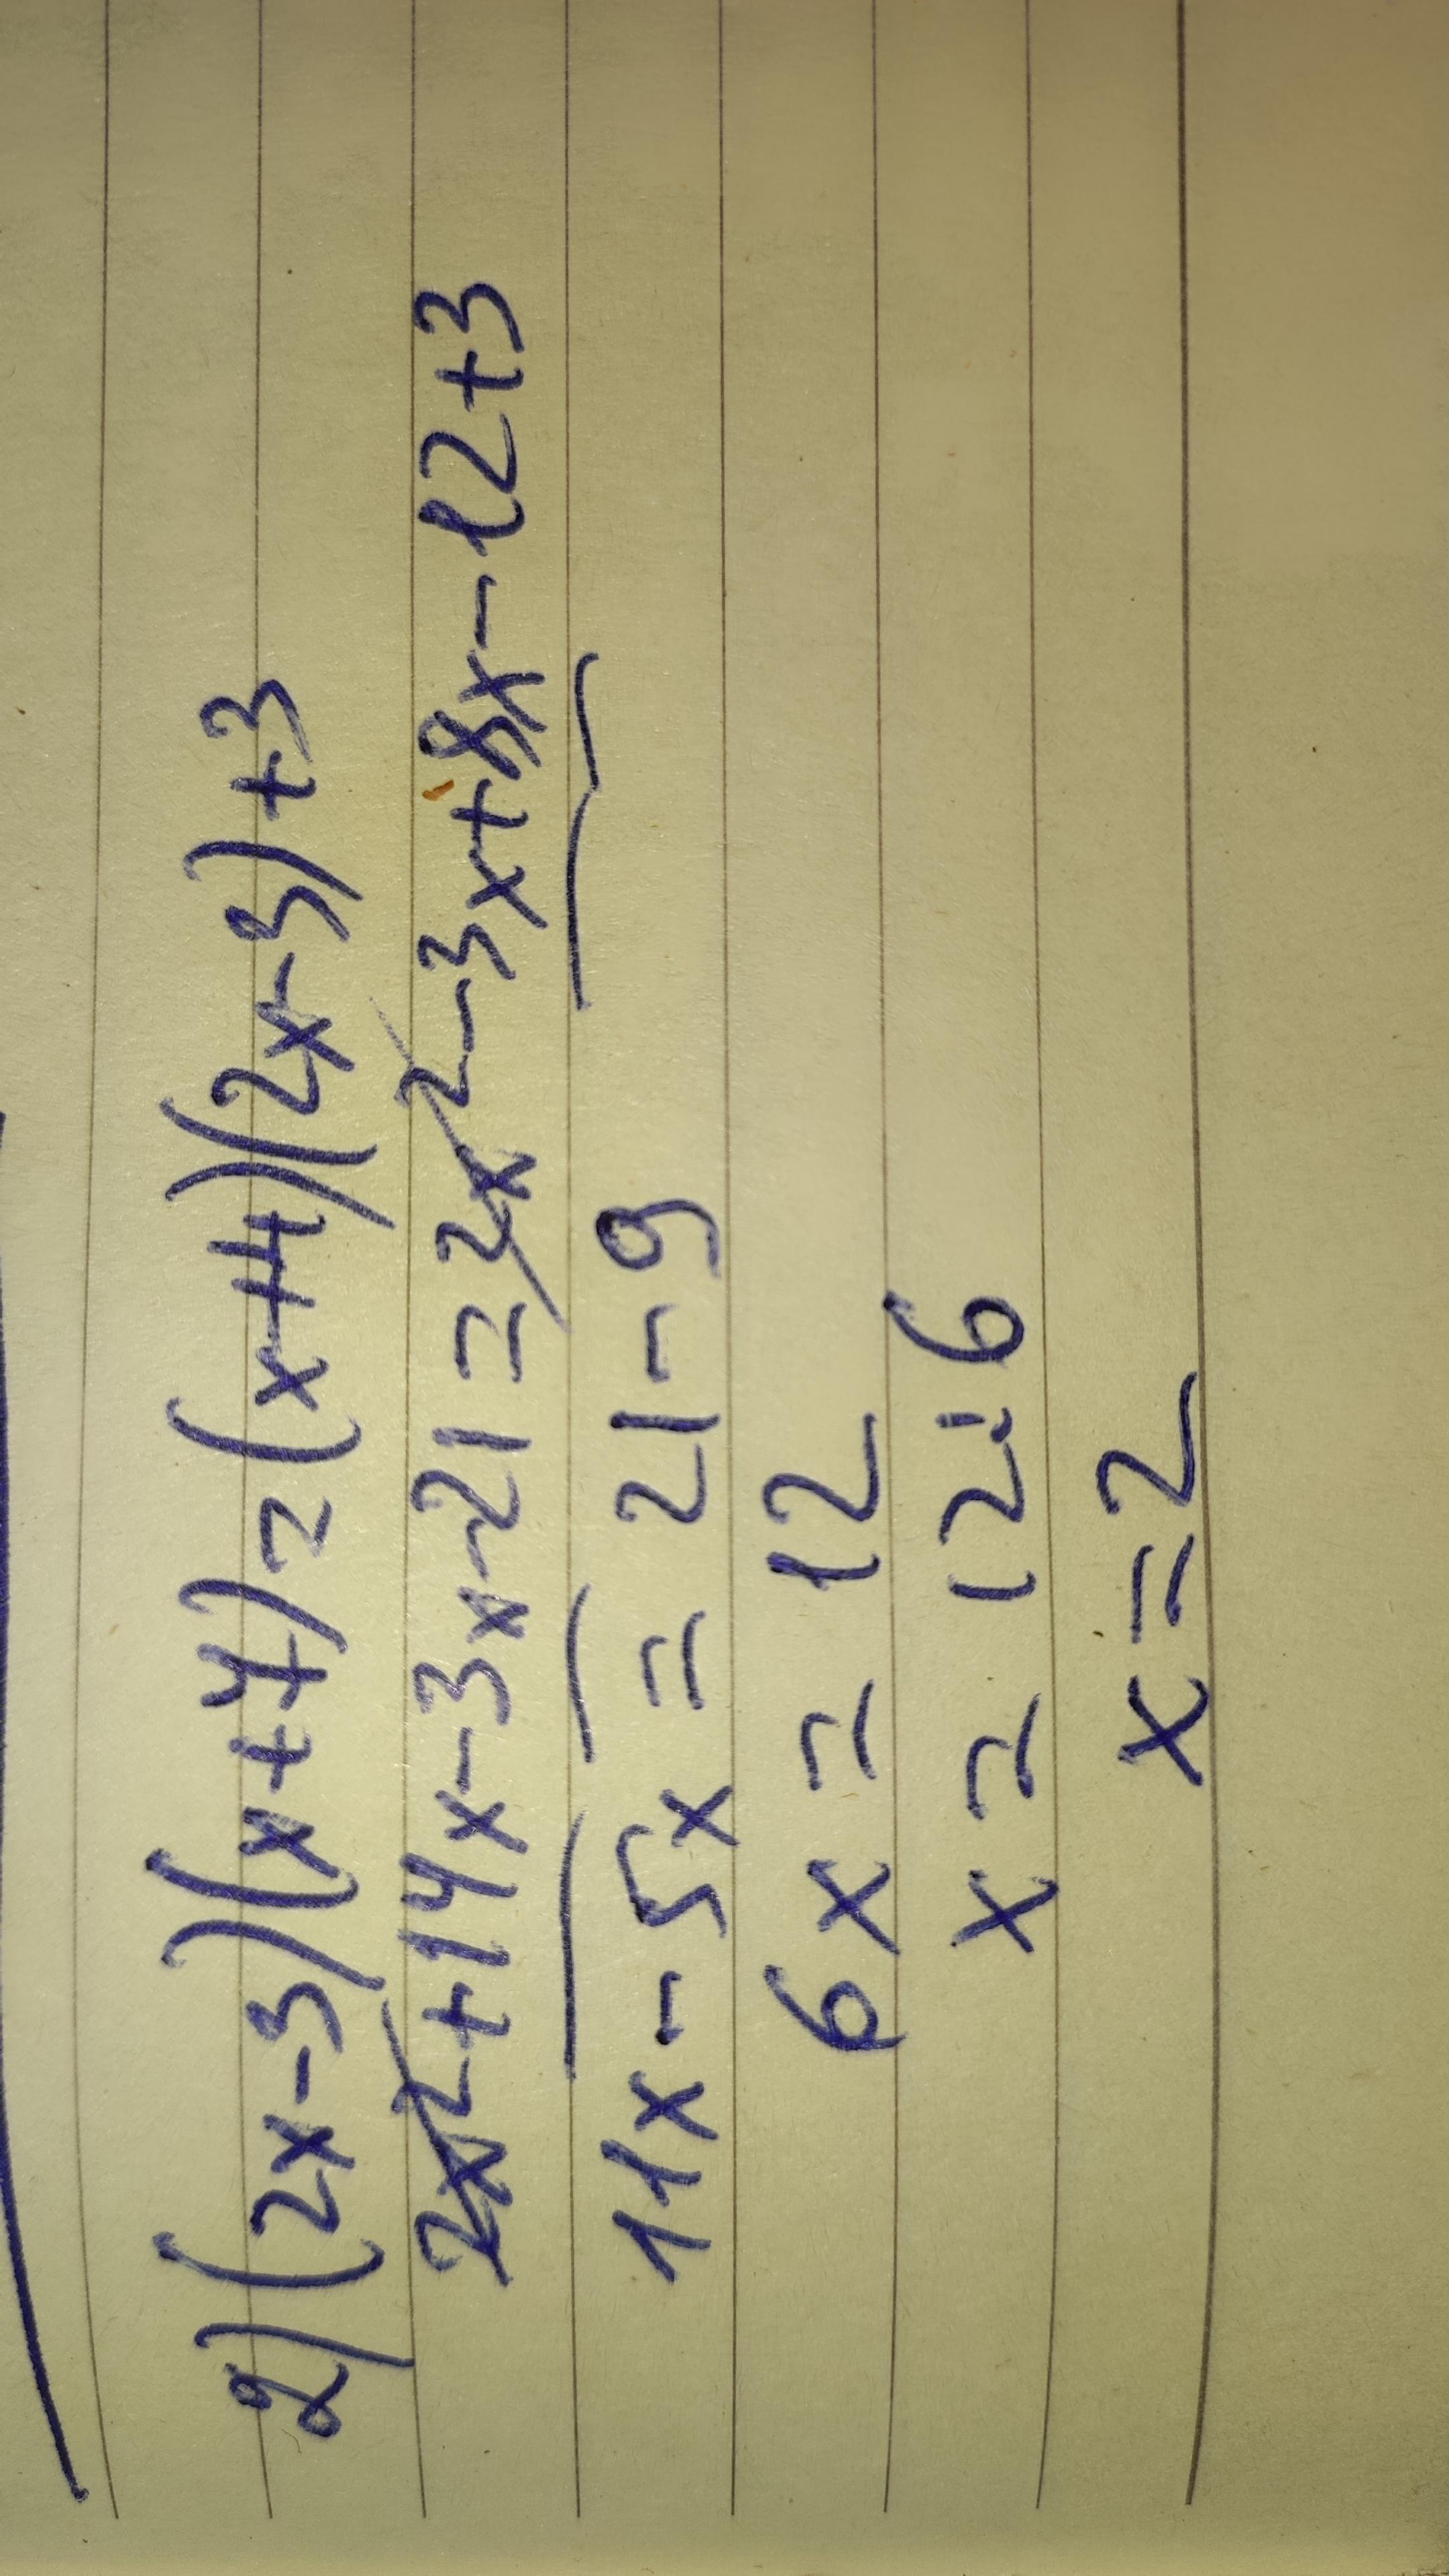 2) (2x-3)(x+7) = (x+4)(2x-3)+3
2x²+14x-3x-21 = 2x²-3x+8x-12+3
11x - 5x = 21-9
6x = 12
x = 12:6
x = 2